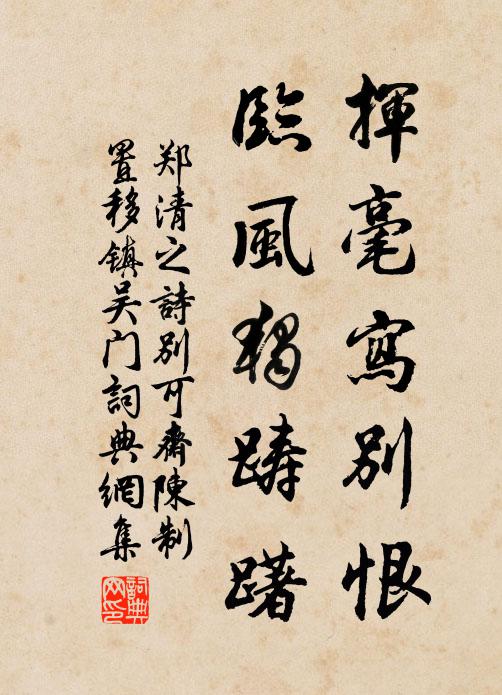 揮毫寫別恨
臨風獨踌躇
郑清之詩别可齋陳制
置移鎮吴门詞典網集
詞典
网印